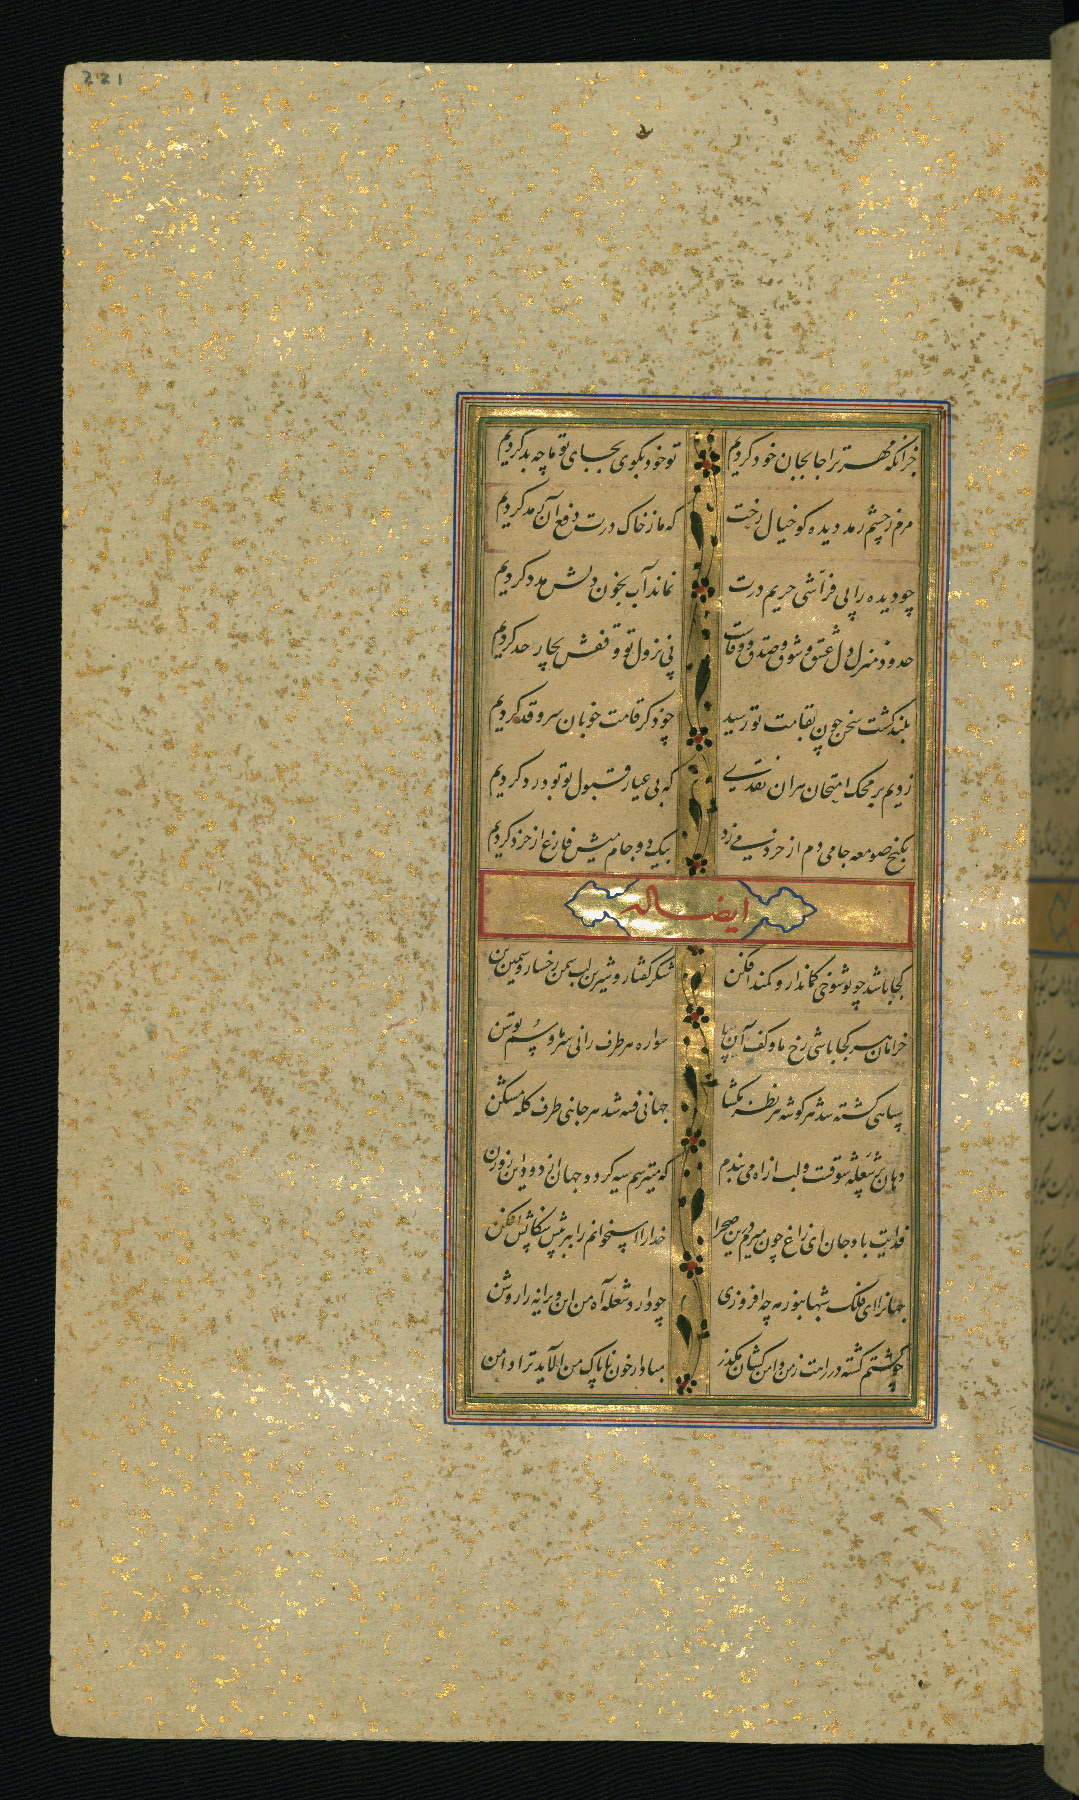 221
جزانکه مهر ترا جا بجان خود کردیم تو خود بگوی بجای تو ما چه بد کردیم
مرم ز چشم رمد دیده کو خیال رخت که ما ز خاک درت دفع آن رمد کردیم
چو دیده را پی فراشی حریم درت نماند آب بخون دلش مدد کردیم
حدود منزل دل عشق و شوق و صدق و وفاست پی نزول تو وقفش بچار حد کردیم
بلند گشت سخن چون بقامت تو رسید چو ذکر قامت خوبان سرو قد کردیم
زدیم بر محک امتحان هران نقدی که بی عیار قبول تو بود رد کردیم
بکنج صومعه جامی دم از خرد میزد بیک دو جام میش فارغ از خرد کردیم
ایضا له
کجا باشد چو تو شوخی کماندار و کمند افکن شکر گفتار و شیرین لب سمن رخسار و سیمین تن
خرامان هر کجا باشی رخ ما و کف آن پا سواره هر طرف رانی سر ما و سم توسن
سپاهی کشته شد هر گوشه هر نظر مکشا جهانی فتنه شد هر جانبی طرف کله مشکن
دهان پر شعله شوقست و لب از آه می بندم که میترسم سیه گردد جهان از دود این روزن
فدایت باد جان ای زاغ چون میرم درین صحرا خدا را استخوانم را به پیش سگانش افکن
جهانرا ای فلک شبها بنور مه چه افروزی چو دارد شعله آه من این ویرانه را روشن
چو گشتم کشته در راهت ز من دامن کشان مگذر مبادا از خون ناپاک من الاید ترا دامن